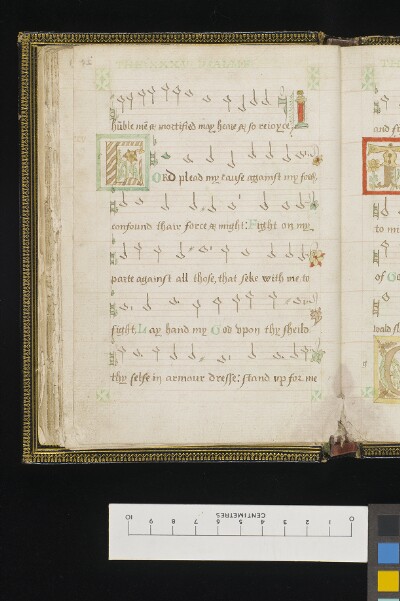 hūble mē & mortified may heare & so reioyce
LORD plead my cause against my foes,
confound thair force & might: Fight on my
parte against all those, that seke with me to
fight. Lay hand my God vpon thy sheild
thy selfe in armour dresse: stand vp for me
and so
to mi
of Go
CENTIMETRES
10 9 8 7 6 5 4 3 2 1 0